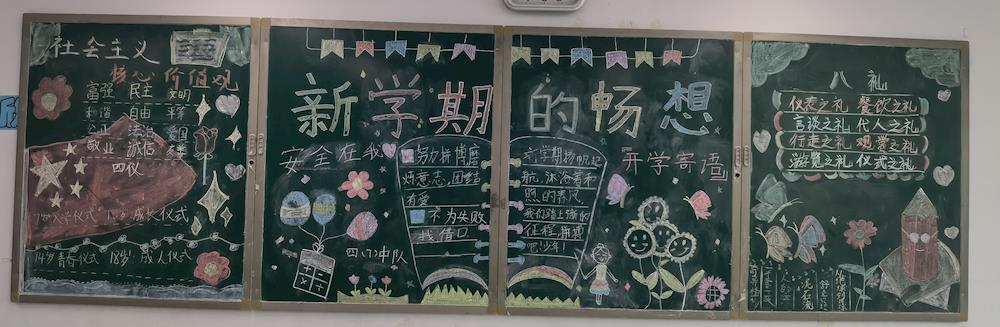 社会主义
核心价值观
富强 民主 文明
和谐 自由 平等
公正 法治 爱国
敬业 诚信 友善
四仪
7岁入学仪式 10岁成长仪式
14岁青春仪式 18岁成人仪式
新学期的畅想
安全在我心
努力拼搏磨
炼意志,团结
有爱
不为失败
找借口
四(7)冲队
新学期扬帆起
航,沐浴着和
煦的春风,
我们踏上新的
征程,奔跑
吧!少年!
开学寄语
八礼
仪表之礼 餐饮之礼
言谈之礼 待人之礼
行走之礼 观赏之礼
游览之礼 仪式之礼